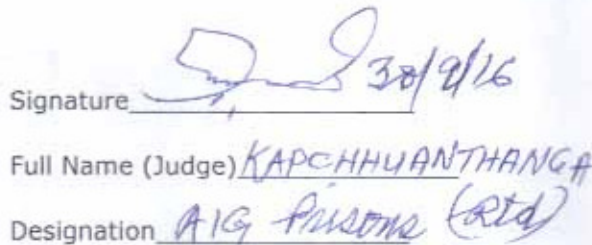 Signature 30/9/16
Full Name (Judge) KAPCHHUANTHANGA
Designation AIG Prisons (Rtd)